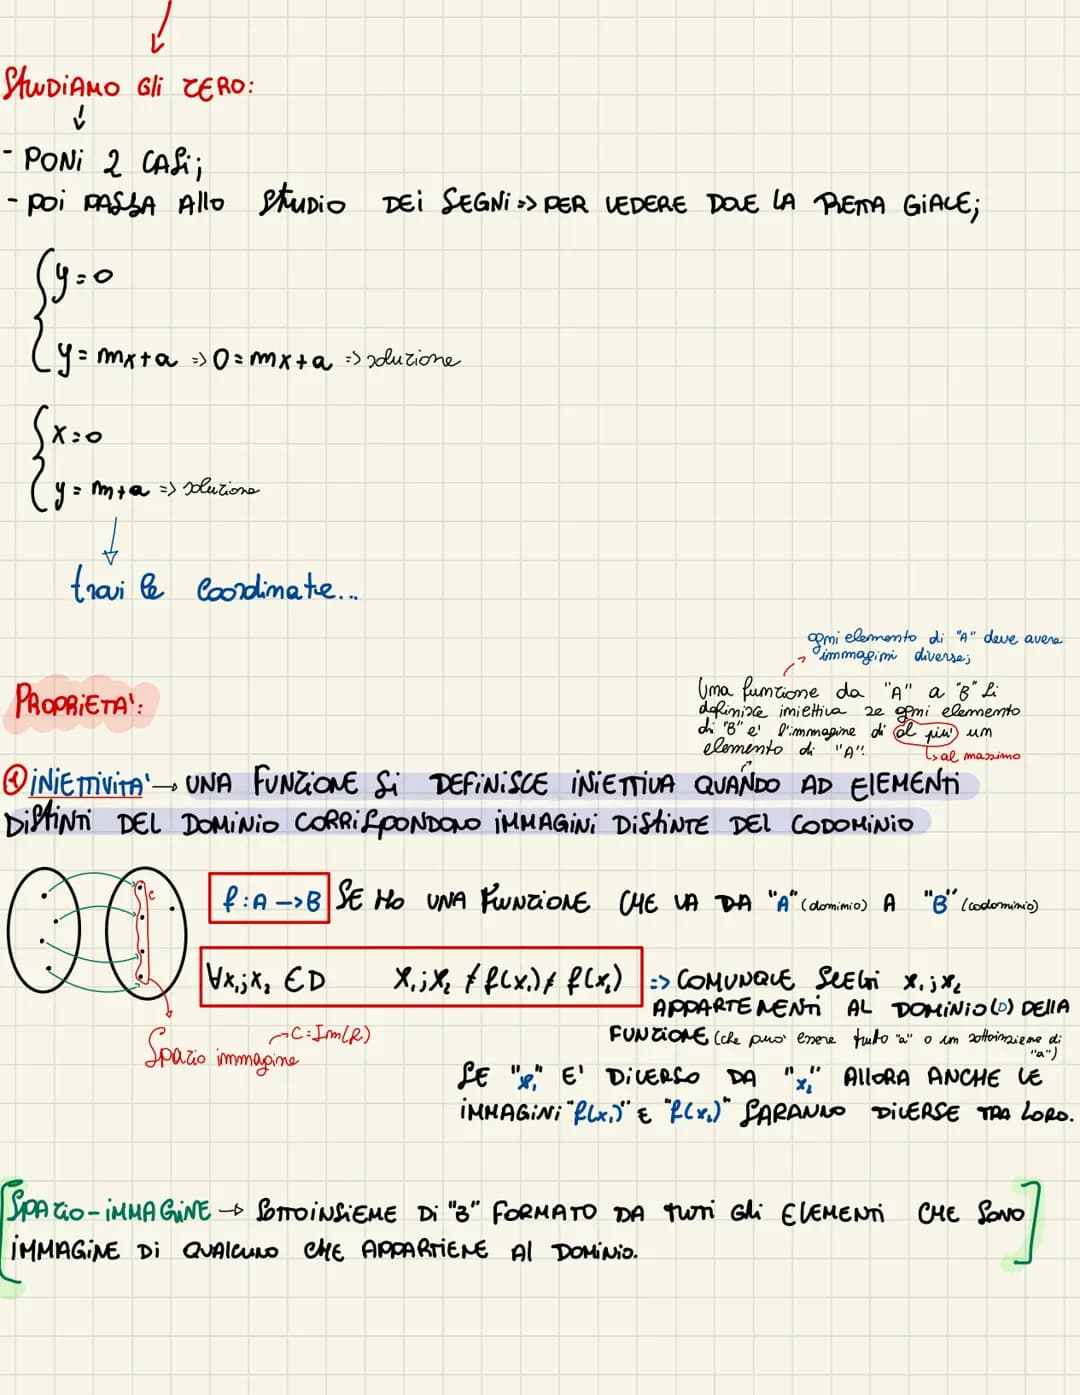 STUDIAMO Gli ZERO:
- PONI 2 CASI;
- POI PASSA Allo STUDIO DEI SEGNI => PER VEDERE DOVE LA RETTA GIACE;
y=0
y=mx+a => 0=mx+a => soluzione
x=0
y=m+a => soluzione
trovi le coordinate...
ogni elemento di "A" deve avere
immagini diverse;
PROPRIETA':
Una funzione da "A" a "B" si
definisce iniettiva se ogni elemento
di "B" e' l'immagine di al piu' un
elemento di "A".
↳ al massimo
① INIETTIVITA' → UNA FUNZIONE SI DEFINISCE INIETTIVA QUANDO AD ELEMENTI
DISTINTI DEL DOMINIO CORRISPONDONO IMMAGINI DISTINTE DEL CODOMINIO
C
f:A->B SE HO UNA FUNZIONE CHE VA DA "A" (dominio) A "B" (codominio)
∀x₁;x₂ ∈D x₁;x₂ ≠ f(x₁) ≠ f(x₂) => COMUNQUE SCEGLI x₁;x₂
APPARTENENTI AL DOMINIO(D) DELLA
FUNZIONE (che puo' essere tutto "a" o un sottoinsieme di
"a")
→C=Im(f)
Spazio immagine
SE "x₁" E' DIVERSO DA "x₂" ALLORA ANCHE LE
IMMAGINI "f(x₁)" E "f(x₂)" SARANNO DIVERSE TRA LORO.
[SPAZIO-IMMAGINE → SOTTOINSIEME DI "B" FORMATO DA TUTTI Gli ELEMENTI CHE SONO
IMMAGINE DI QUALCUNO CHE APPARTIENE Al DOMINIO.]